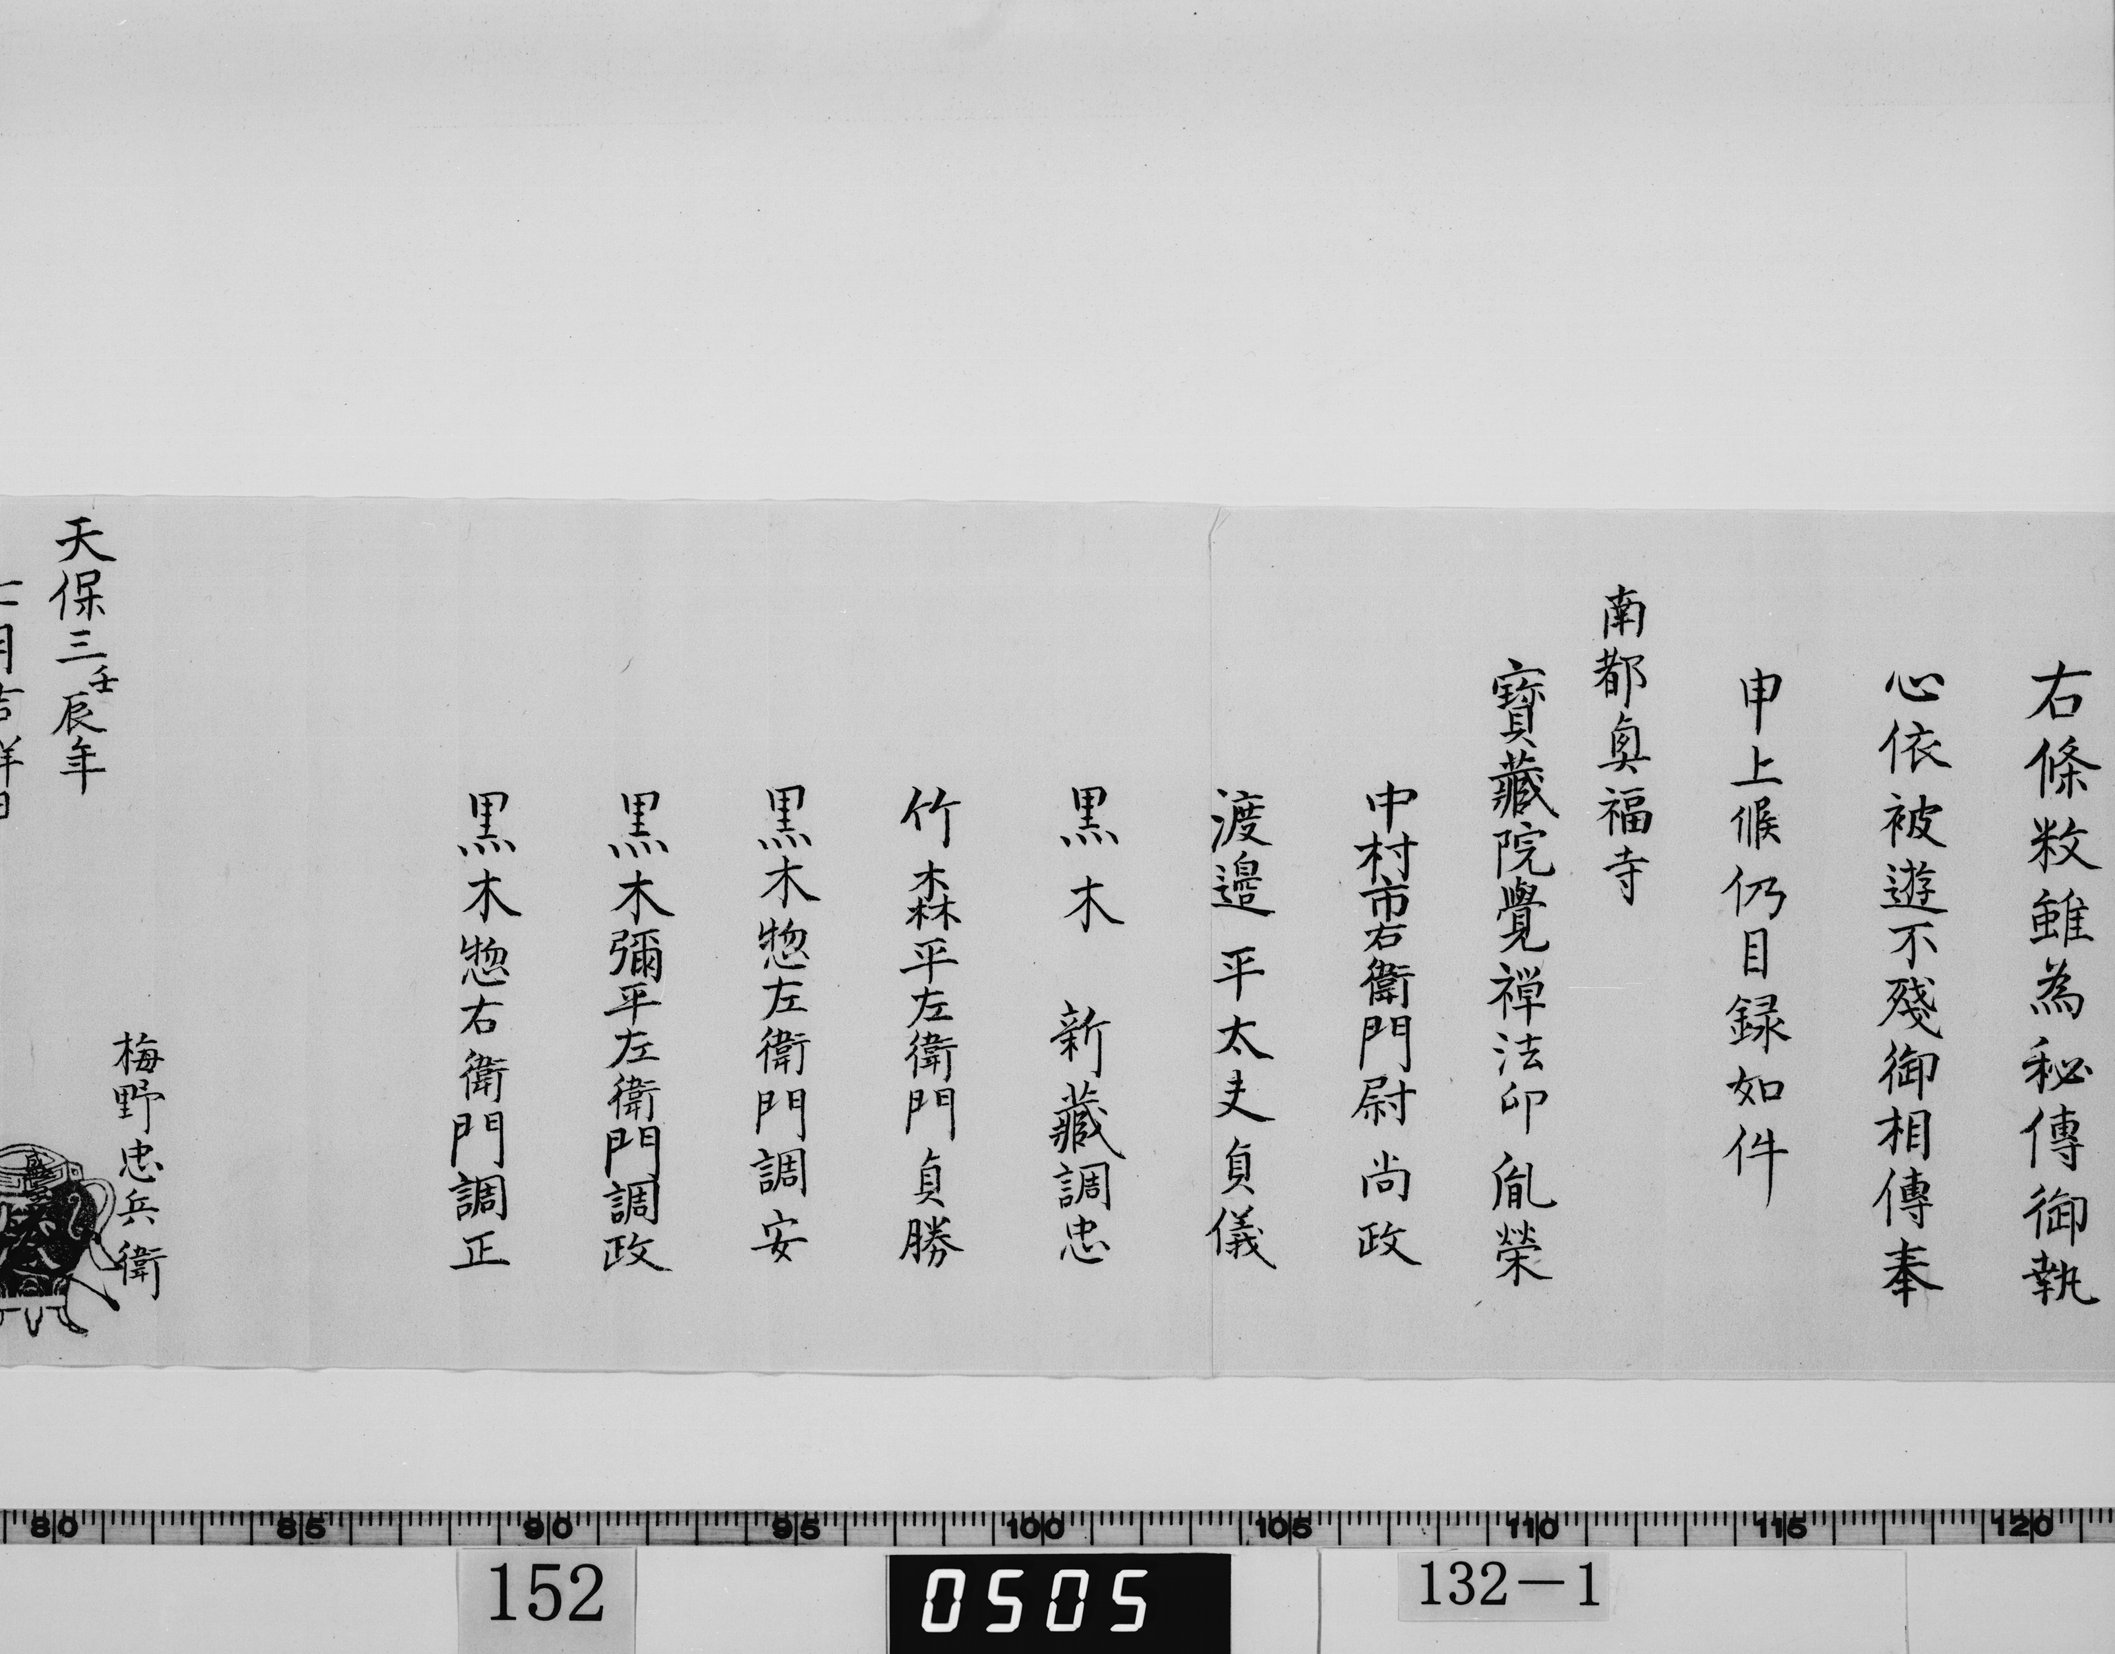 右條敉雖為秘傳御執
心依被遊不殘御相傳奉
申上候仍目録如件
南都興福寺
寶藏院覺禅法印胤榮
中村市右衛門尉尚政
渡邉平太夫貞儀
黒木 新藏調忠
竹森平左衛門貞勝
黒木惣左衛門調安
黒木彌平左衛門調政
黒木惣右衛門調正
梅野忠兵衛
天保三壬辰年
七月吉祥日
80 85 90 95 100 105 110 115 120
152
0505
132-1